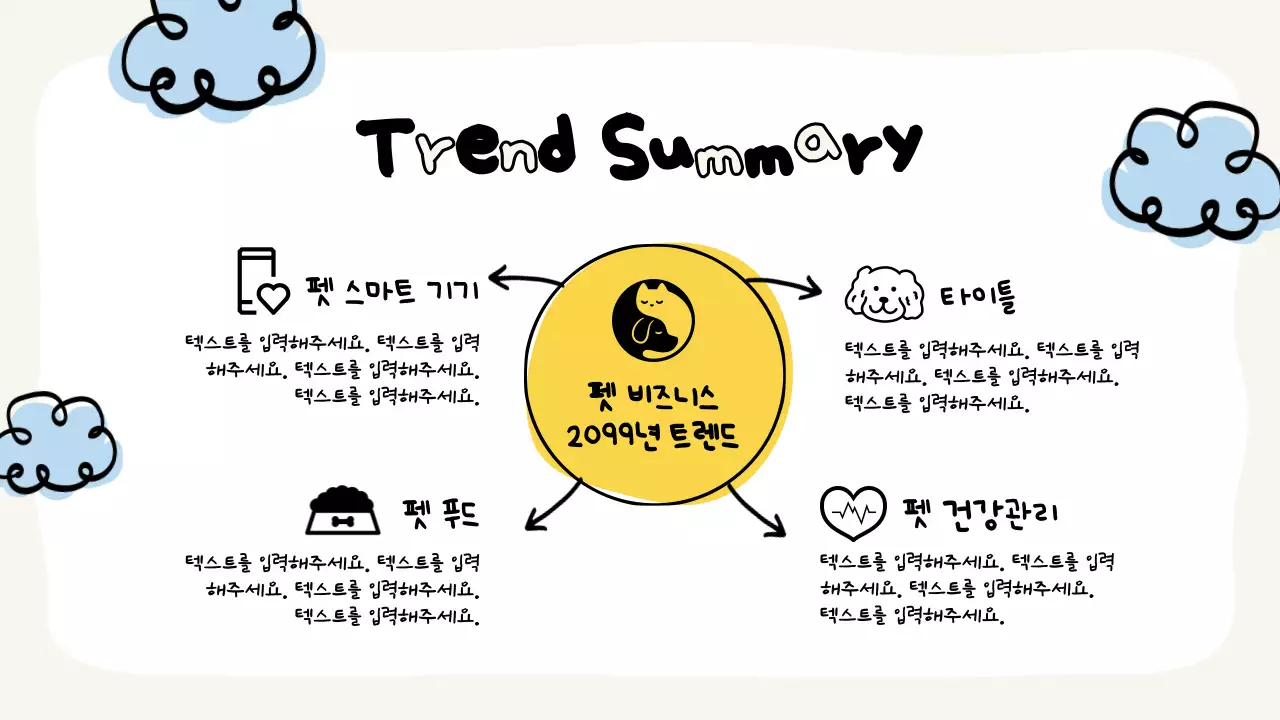 Trend Summary
펫 스마트 기기
텍스트를 입력해주세요. 텍스트를 입력
해주세요. 텍스트를 입력해주세요.
텍스트를 입력해주세요.
타이틀
텍스트를 입력해주세요. 텍스트를 입력
해주세요. 텍스트를 입력해주세요.
텍스트를 입력해주세요.
펫 비즈니스
2099년 트렌드
펫 푸드
텍스트를 입력해주세요. 텍스트를 입력
해주세요. 텍스트를 입력해주세요.
텍스트를 입력해주세요.
펫 건강관리
텍스트를 입력해주세요. 텍스트를 입력
해주세요. 텍스트를 입력해주세요.
텍스트를 입력해주세요.